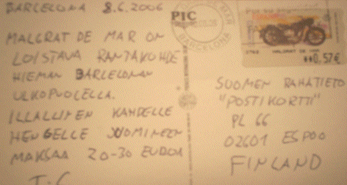 BARCELONA 8.6.2006
MALGRAT DE MAR ON
LOISTAVA RANTAKOHDE
HIEMAN BARCELONAN
ULKOPUOLELLA.
ILLALLINEN KAHDELLE
HENGELLE SUOMINEEN
MAKSAA 20-30 EUROA
PIC
BARCELONA
MALGRAT DE MAR
0,57€
SUOMEN RAHATIETO
"POSTIKORTTI"
PL 66
02601 ESPOO
FINLAND